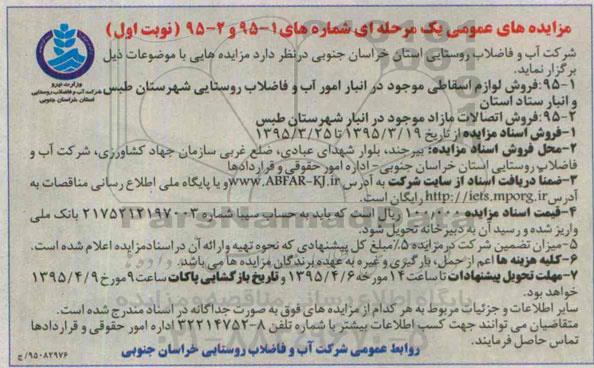 مزایده های عمومی یک مرحله ای شماره های ۱-۹۵ و ۲-۹۵ (نوبت اول)
شرکت آب و فاضلاب روستایی استان خراسان جنوبی درنظر دارد مزایده هایی با موضوعات ذیل
برگزار نماید.
۱-۹۵:فروش لوازم اسقاطی موجود در انبار امور آب و فاضلاب روستایی شهرستان طبس
و انبار ستاد استان
۲-۹۵:فروش اتصالات مازاد موجود در انبار شهرستان طبس
۱-فروش اسناد مزایده از تاریخ ۱۳۹۵/۳/۱۹ تا ۱۳۹۵/۳/۲۵
۲-محل فروش اسناد مزایده: بیرجند، بلوار شهدای عبادی، ضلع غربی سازمان جهاد کشاورزی، شرکت آب و
فاضلاب روستایی استان خراسان جنوبی- اداره امور حقوقی و قراردادها
۳-ضمنا دریافت اسناد از سایت شرکت به آدرس www.ABFAR-KJ.ir و یا پایگاه ملی اطلاع رسانی مناقصات به
آدرس http://iets.mporg.ir رایگان است.
۴-قیمت اسناد مزایده ۱۰۰/۰۰۰ ریال است که باید به حساب سیبا شماره ۲۱۷۵۲۱۲۱۹۷۰۰۳ بانک ملی
واریز شده و رسید آن به دبیرخانه تحویل شود.
۵-میزان تضمین شرکت در مزایده ۵٪ مبلغ کل پیشنهادی که نحوه تهیه و ارائه آن در اسناد مزایده اعلام شده است.
۶-کلیه هزینه ها اعم از حمل، بارگیری و غیره به عهده برندگان مزایده ها می باشد.
۷-مهلت تحویل پیشنهادات تا ساعت ۱۴ مورخه ۱۳۹۵/۴/۶ و تاریخ بازگشایی پاکات ساعت ۹ مورخ ۱۳۹۵/۴/۹
خواهد بود.
سایر اطلاعات و جزئیات مربوط به هر کدام از مزایده های فوق به صورت جداگانه در اسناد مندرج شده است.
متقاضیان می توانند جهت کسب اطلاعات بیشتر با شماره تلفن ۸-۳۲۲۱۴۷۵۲ اداره امور حقوقی و قراردادها
تماس حاصل فرمایند.
روابط عمومی شرکت آب و فاضلاب روستایی خراسان جنوبی
۹۵۰۸۲۹۷۶/ج
وزارت نیرو
شرکت آب و فاضلاب روستایی
استان خراسان جنوبی
ParsNamadData
پایگاه اطلاع رسانی مناقصه و مزایده